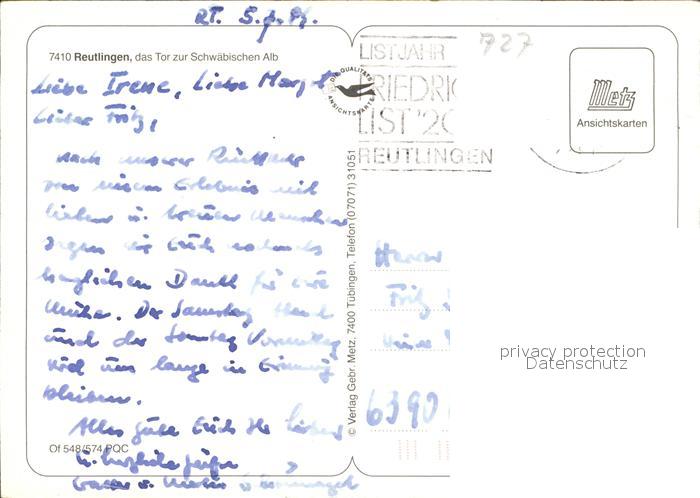 RT. 5.
727
7410 Reutlingen, das Tor zur Schwäbischen Alb
DIE QUALITÄTS
ANSICHTSKARTE
LISTJAHR
FRIEDRI
LIST '20
REUTLINGEN
Metz
Ansichtskarten
Liebe Irene, Liebe Margot
Lieber Fritz,
nach unserer Rückkehr
von einem Erlebnis mit
lieben u. treuen Menschen
sagen wir Euch nochmals
herzlichen Dank für eure
Mühe. Der Samstag Abend
und der Sonntag Vormittag
wird uns lange in Erinnerung
bleiben.
Alles gute Euch Ihr Lieben
u. herzliche Grüße
© Verlag Gebr. Metz, 7400 Tübingen, Telefon (07071) 31051
Herrn
Fritz
6390
Of 548/574 PQC
privacy protection
Datenschutz